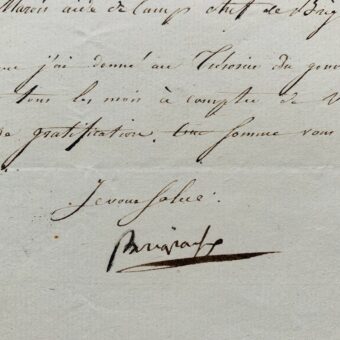 Marois aide de Camp chef de Brig
que j'ai donné au Trésorier du gouv
tous les mois à compter de V
gratification. Cette somme vous
Je vous Salue.